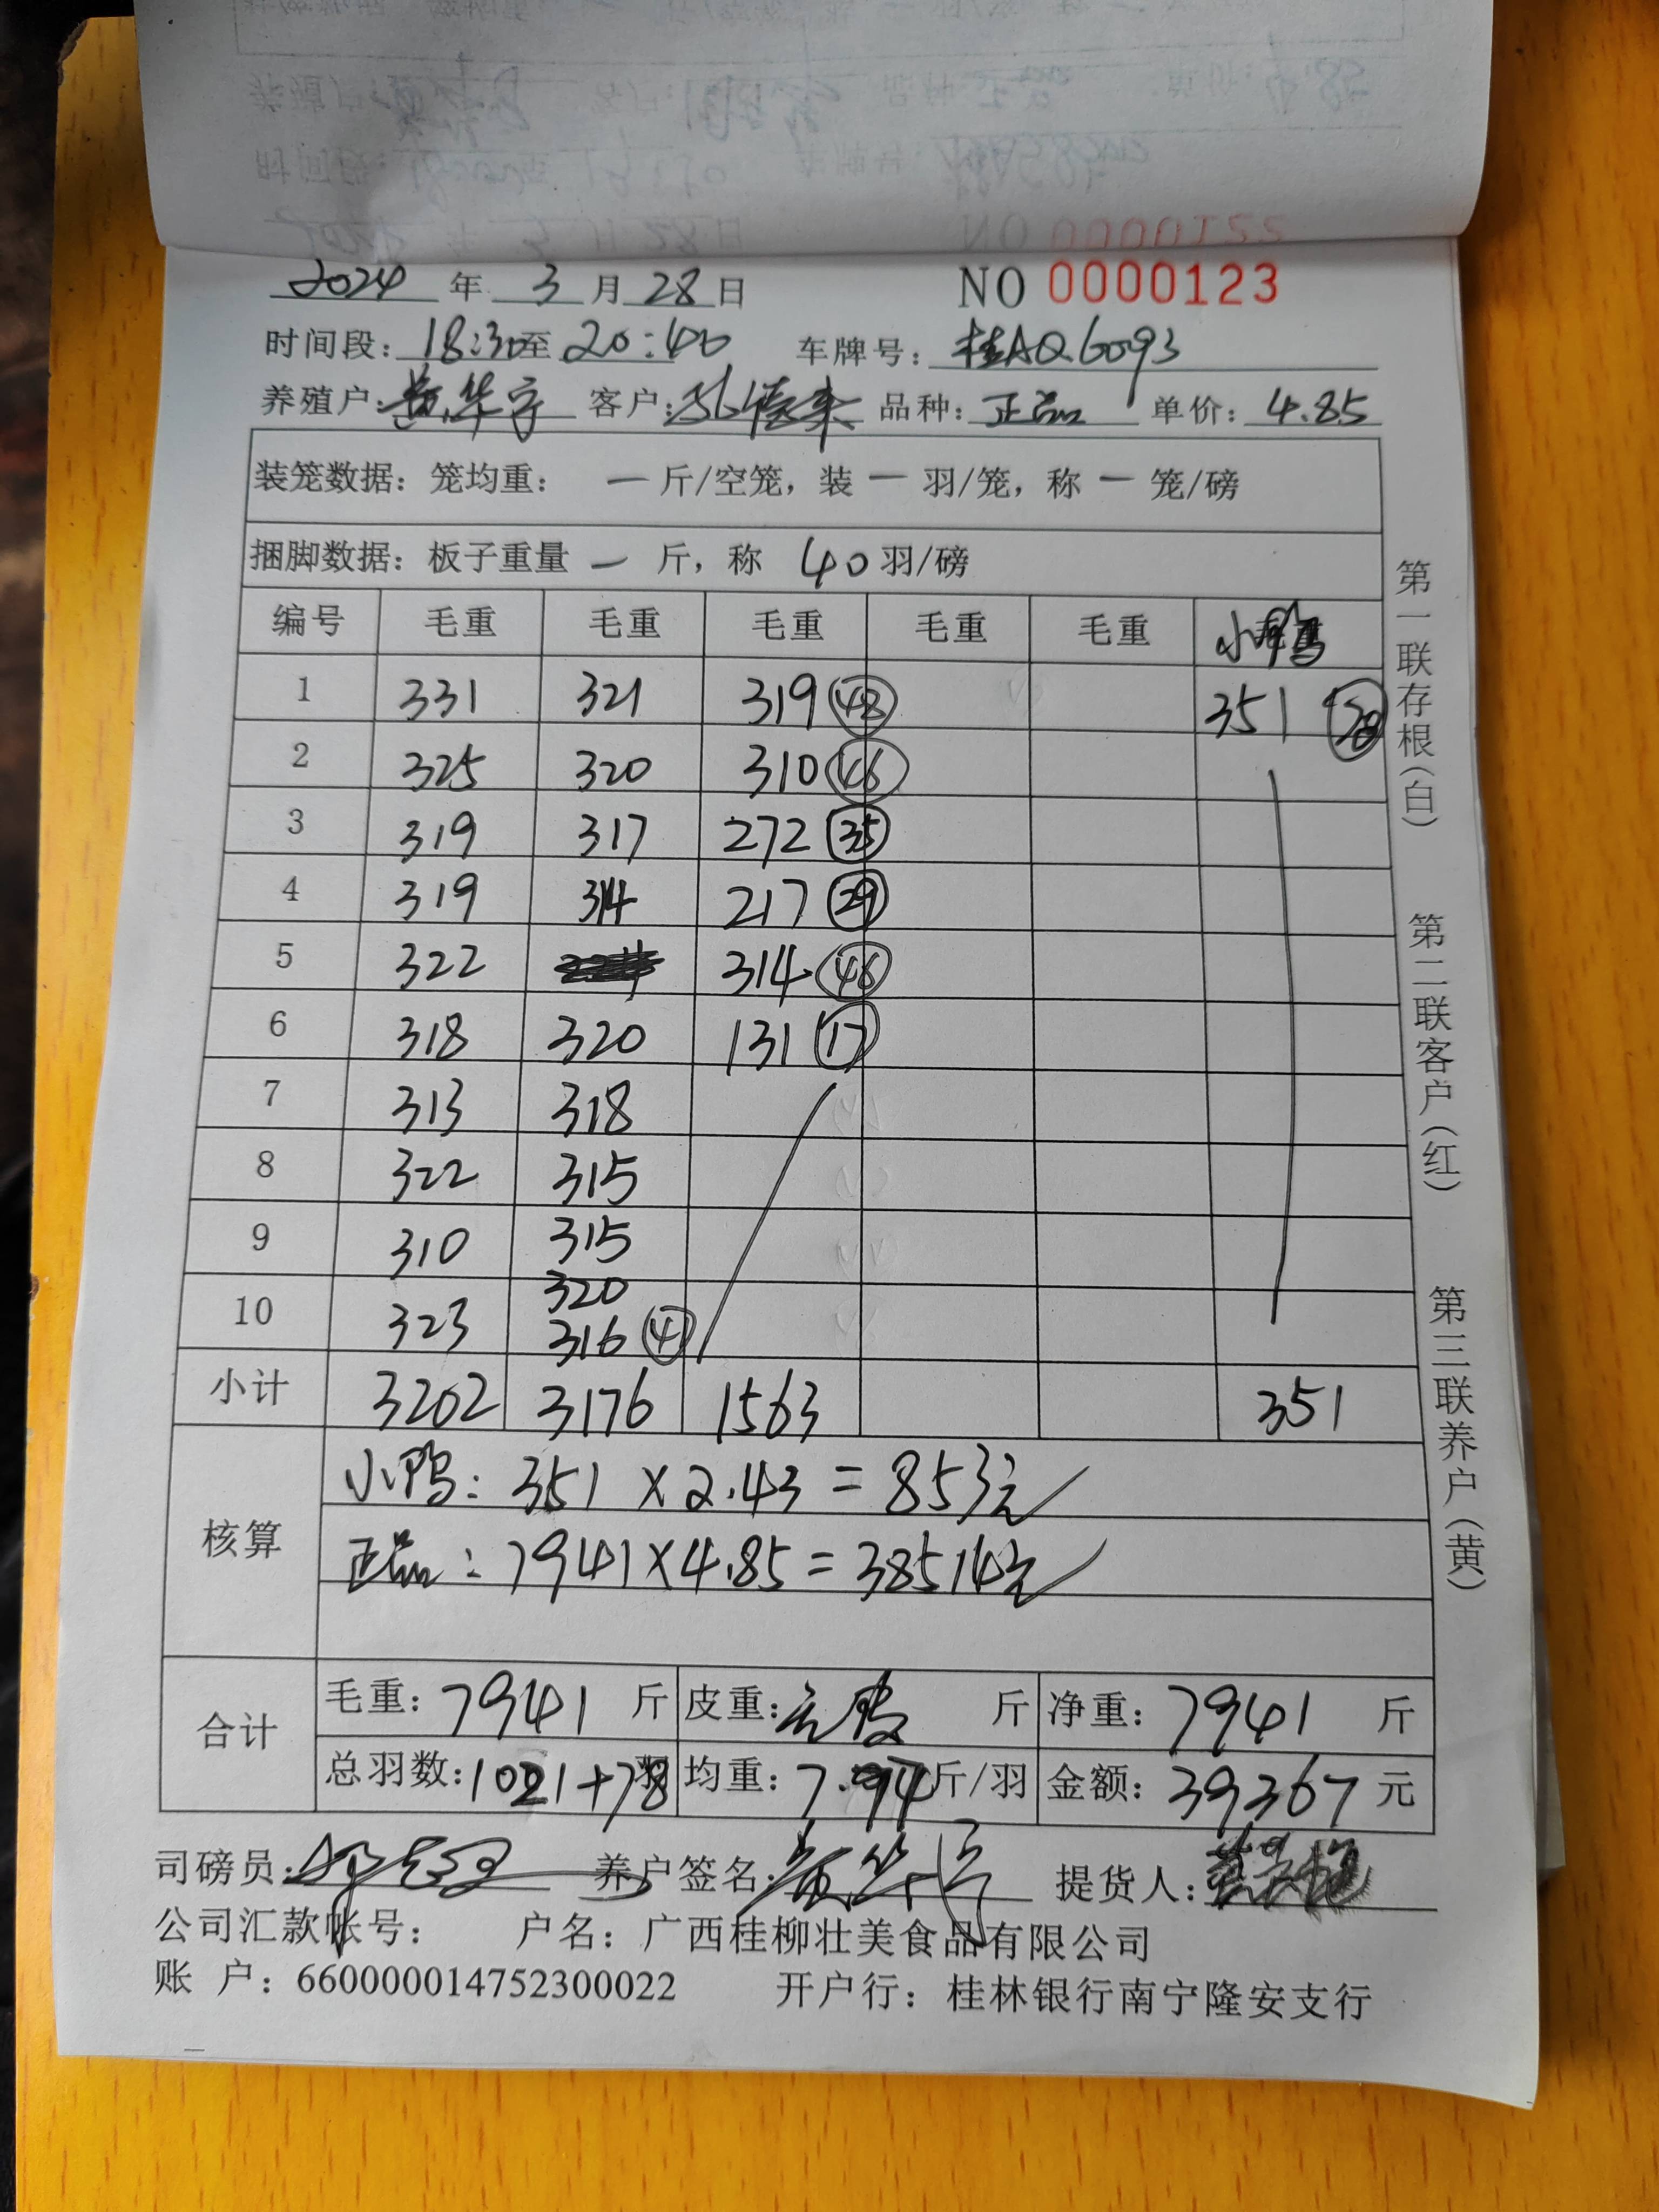 2024 年 3 月 28 日 NO 0000123
时间段: 18:30至 20:40 车牌号: 桂AQ6093
养殖户: 黄华宇 客户: 品种: 正品 单价: 4.85
装笼数据: 笼均重: 一 斤/空笼, 装 一 羽/笼, 称 一 笼/磅
捆脚数据: 板子重量 一 斤, 称 40 羽/磅
编号 毛重 毛重 毛重 毛重 毛重 小鸭
1 331 321 319 48 351 78
2 325 320 310 46
3 319 317 272 35
4 319 314 217 29
5 322 314 46
6 318 320 131 17
7 313 318
8 322 315
9 310 315
320
10 323 316
小计 3202 3176 1563 351
核算
小鸭: 351 × 2.43 = 853元
正品: 7941×4.85=38514元
合计
毛重: 7941 斤 皮重: 斤 净重: 7941 斤
总羽数: 1021+78 均重: 7.94 斤/羽 金额: 39367 元
司磅员: 养户签名: 黄华宇 提货人:
公司汇款帐号: 户名: 广西桂柳壮美食品有限公司
账 户: 660000014752300022 开户行: 桂林银行南宁隆安支行
第一联存根(白) 第二联客户(红) 第三联养户(黄)